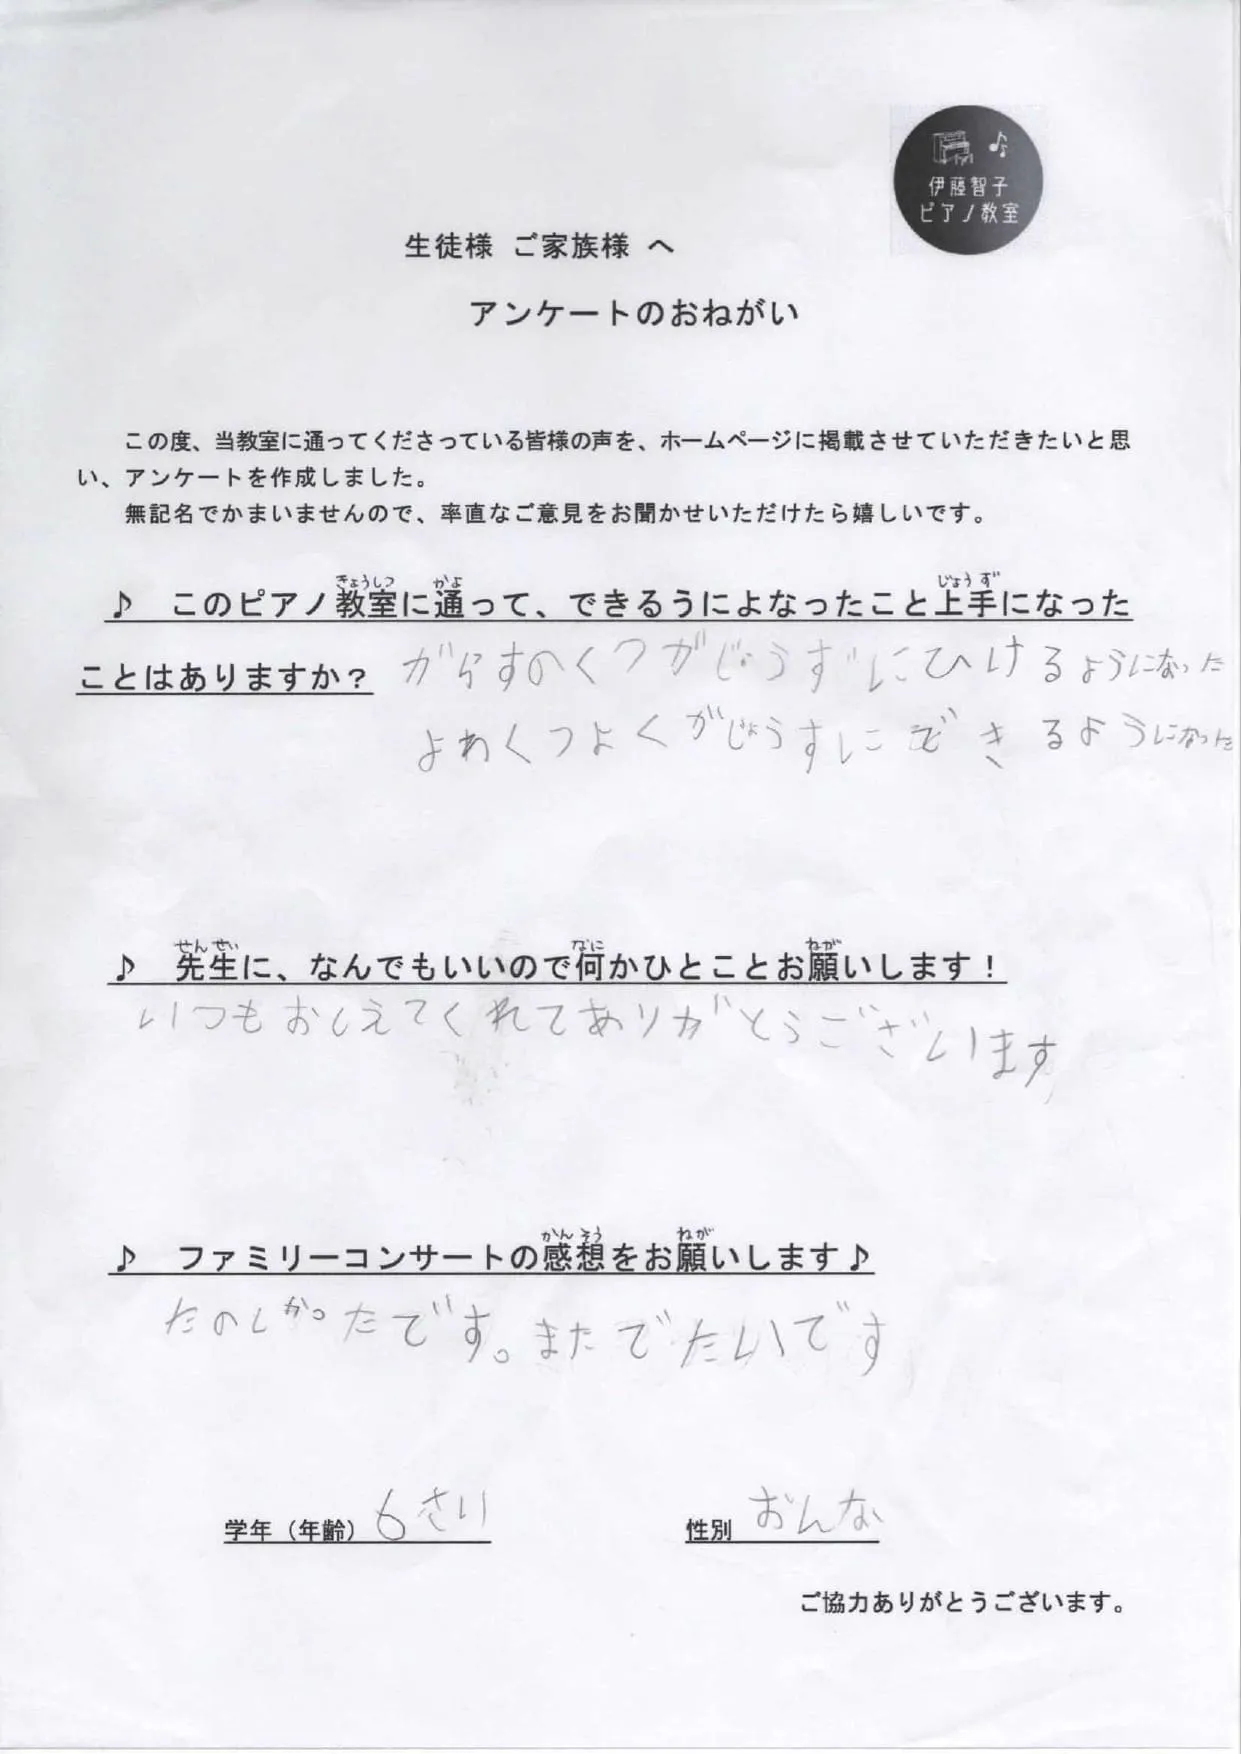 伊藤智子
ピアノ教室
生徒様 ご家族様 へ
アンケートのおねがい
この度、当教室に通ってくださっている皆様の声を、ホームページに掲載させていただきたいと思
い、アンケートを作成しました。
無記名でかまいませんので、率直なご意見をお聞かせいただけたら嬉しいです。
きょうしつ かよ じょうず
♪ このピアノ教室に通って、できるうによなったこと上手になった
ことはありますか?
がらすのくつがじょうずにひけるようになった
よわくつよくがじょうすにできるようになった
せんせい なに ねが
♪ 先生に、なんでもいいので何かひとことお願いします!
いつもおしえてくれてありがとうございます
かんそう ねが
♪ ファミリーコンサートの感想をお願いします♪
たのしかったです。またでたいです
学年(年齢) 6さい 性別 おんな
ご協力ありがとうございます。